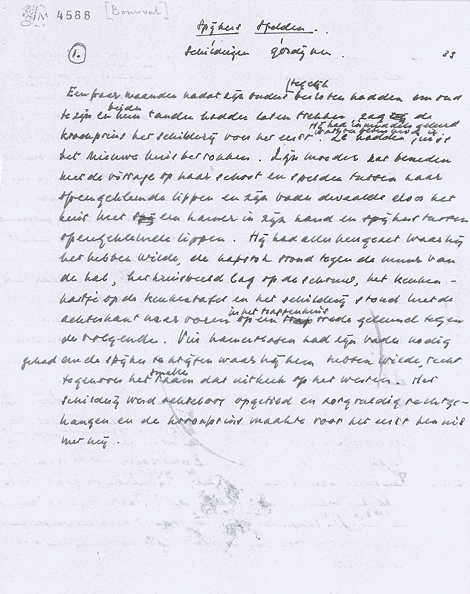 4588 [Bouwval]
Spijkers Spelden.
Schilderijen gordijnen
1.
83
tegelijk
Een paar maanden nadat zijn ouders besloten hadden om oud
te zijn en hun tanden hadden laten trekken, zag de
beiden
kroonprins het schilderij voor het eerst. Ze hadden juist
het nieuwe huis betrokken. Zijn moeder zat beneden
met de vitrage op haar schoot en spelden tussen haar
opengeklemde lippen en zijn vader dwaalde door het
huis met een hamer in zijn hand en spijkers tussen
opengeklemde lippen. Hij had alles neergezet waar hij
het hebben wilde, de kapstok stond tegen de muur van
de hal, het kruisbeeld lag op de schouw, het keuken-
kastje op de keukentafel en het schilderij stond met de
in het trappenhuis
achterkant naar voren op een trap trede geleund tegen
de volgende. Vier hamerslagen had zijn vader nodig
gehad om de spijker te krijgen waar hij hem hebben wilde recht
smalle
tegenover het raam dat uitkeek op het westen. Het
schilderij werd achteloos opgetild en zorgvuldig rechtge-
hangen en de kroonprins maakte voor het eerst kennis
met mij.